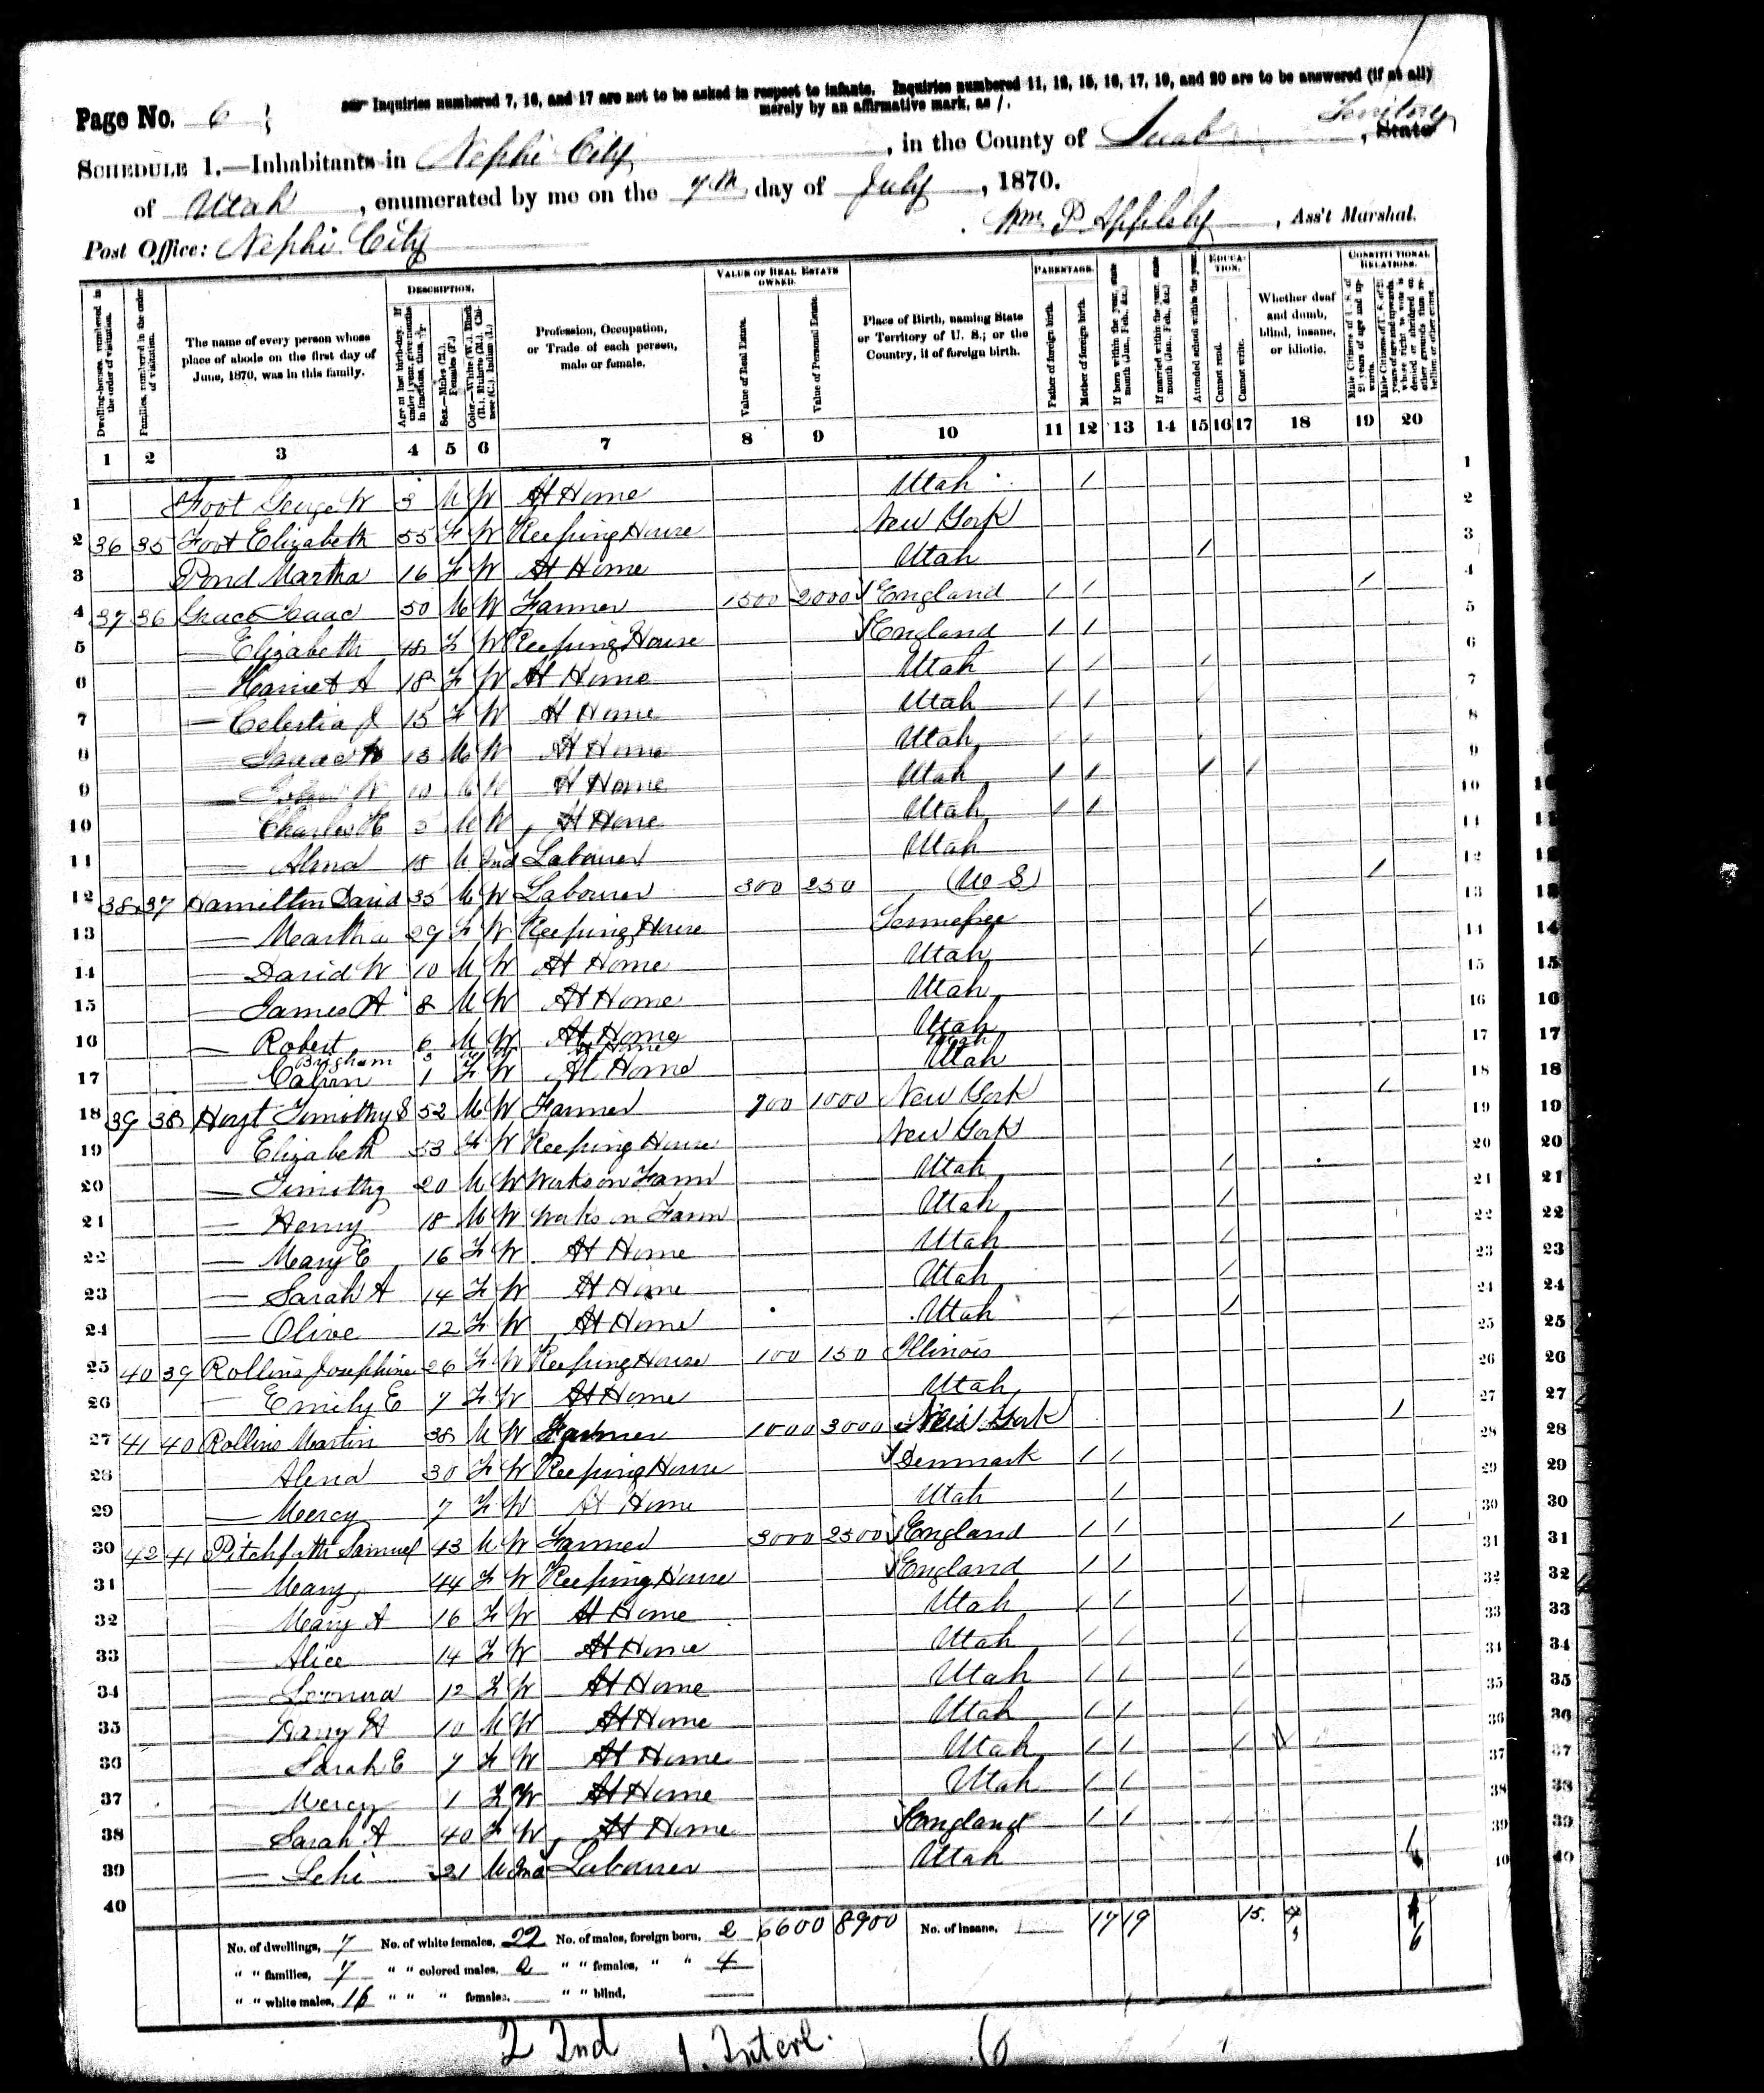 Page No. 6
☞ Inquiries numbered 7, 16, and 17 are not to be asked in respect to infants. Inquiries numbered 11, 12, 15, 16, 17, 19, and 20 are to be answered (if at all)
merely by an affirmative mark, as /.
SCHEDULE 1.—Inhabitants in Nephi City, in the County of Juab, State Territory
of Utah, enumerated by me on the 7th day of July, 1870.
Post Office: Nephi City Wm P Appleby, Ass't Marshal.
DESCRIPTION. VALUE OF REAL ESTATE OWNED. PARENTAGE. EDUCATION. CONSTITUTIONAL RELATIONS.
Dwelling-houses, numbered in the order of visitation.
Families, numbered in the order of visitation.
The name of every person whose place of abode on the first day of June, 1870, was in this family.
Age at last birth-day. If under 1 year, give months in fractions, thus,
Sex.—Males (M.), Females (F.)
Color.—White (W.), Black (B.), Mulatto (M.), Chinese (C.), Indian (I.)
Profession, Occupation, or Trade of each person, male or female.
Value of Real Estate.
Value of Personal Estate.
Place of Birth, naming State or Territory of U. S.; or the Country, if of foreign birth.
Father of foreign birth.
Mother of foreign birth.
If born within the year, state month (Jan., Feb., &c.)
If married within the year, state month (Jan., Feb., &c.)
Attended school within the year.
Cannot read.
Cannot write.
Whether deaf and dumb, blind, insane, or idiotic.
Male Citizens of U. S. of 21 years of age and upwards.
Male Citizens of U. S. of 21 years of age and upwards, whose right to vote is denied or abridged on other grounds than rebellion or other crime.
1 2 3 4 5 6 7 8 9 10 11 12 13 14 15 16 17 18 19 20
1 Foot George W 3 M W At Home Utah /
2 36 35 Foot Elizabeth 55 F W Keeping House New York
3 Pond Martha 16 F W At Home Utah /
4 37 36 Grace Isaac 50 M W Farmer 1500 2000 England / / /
5 — Elizabeth 48 F W Keeping House England / /
6 — Harriet A 18 F W At Home Utah / / /
7 — Celestia J 15 F W At Home Utah / / /
8 — Isaac H 13 M W At Home Utah / / /
9 — John W 10 M W At Home Utah / / / /
10 Charles H 5 M W At Home Utah / /
11 — Alma 18 M Ind Labourer Utah
12 38 37 Hamilton David 35 M W Labourer 300 250 (U S) /
13 — Martha 29 F W Keeping House Tennessee /
14 — David W 10 M W At Home Utah /
15 — James A 8 M W At Home Utah
16 — Robert 6 M W At Home Utah
Brigham 3 M W At Home Utah
17 — 1 F W At Home Utah
18 39 38 Hoyt Timothy S 52 M W Farmer 700 1000 New York /
19 Elizabeth 53 F W Keeping House New York
20 — Timothy 20 M W Works on Farm Utah /
21 — Henry 18 M W Works on Farm Utah /
22 — Mary E 16 F W At Home Utah /
23 — Sarah A 14 F W At Home Utah /
24 — Olive 12 F W At Home Utah /
25 40 39 Rollins Josephine 26 F W Keeping House 100 150 Illinois
26 — Emily E 7 F W At Home Utah
27 41 40 Rollins Martin 38 M W Farmer 1000 3000 New York /
28 Alena 30 F W Keeping House Denmark / /
29 — Mercy 7 F W At Home Utah /
30 42 41 Pitchforth Samuel 43 M W Farmer 3000 2500 England / / /
31 — Mary 44 F W Keeping House England / /
32 — Mary A 16 F W At Home Utah / / /
33 — Alice 14 F W At Home Utah / / /
34 — 12 F W At Home Utah / / /
35 — Harry H 10 M W At Home Utah / / /
36 — Sarah E 7 F W At Home Utah / / /
37 — Mercy 1 F W At Home Utah / /
38 — Sarah A 40 F W At Home England / /
39 — Lehi 21 M Ind Labourer Utah
40
No. of dwellings, 7 No. of white females, 22 No. of males, foreign born, 2 6600 8900 No. of insane, 17 19 15 6
" " families, 7 " " colored males, 2 " " females, " " 4
" " white males, 16 " " " females, " " blind,
2 Ind 1. Interl.